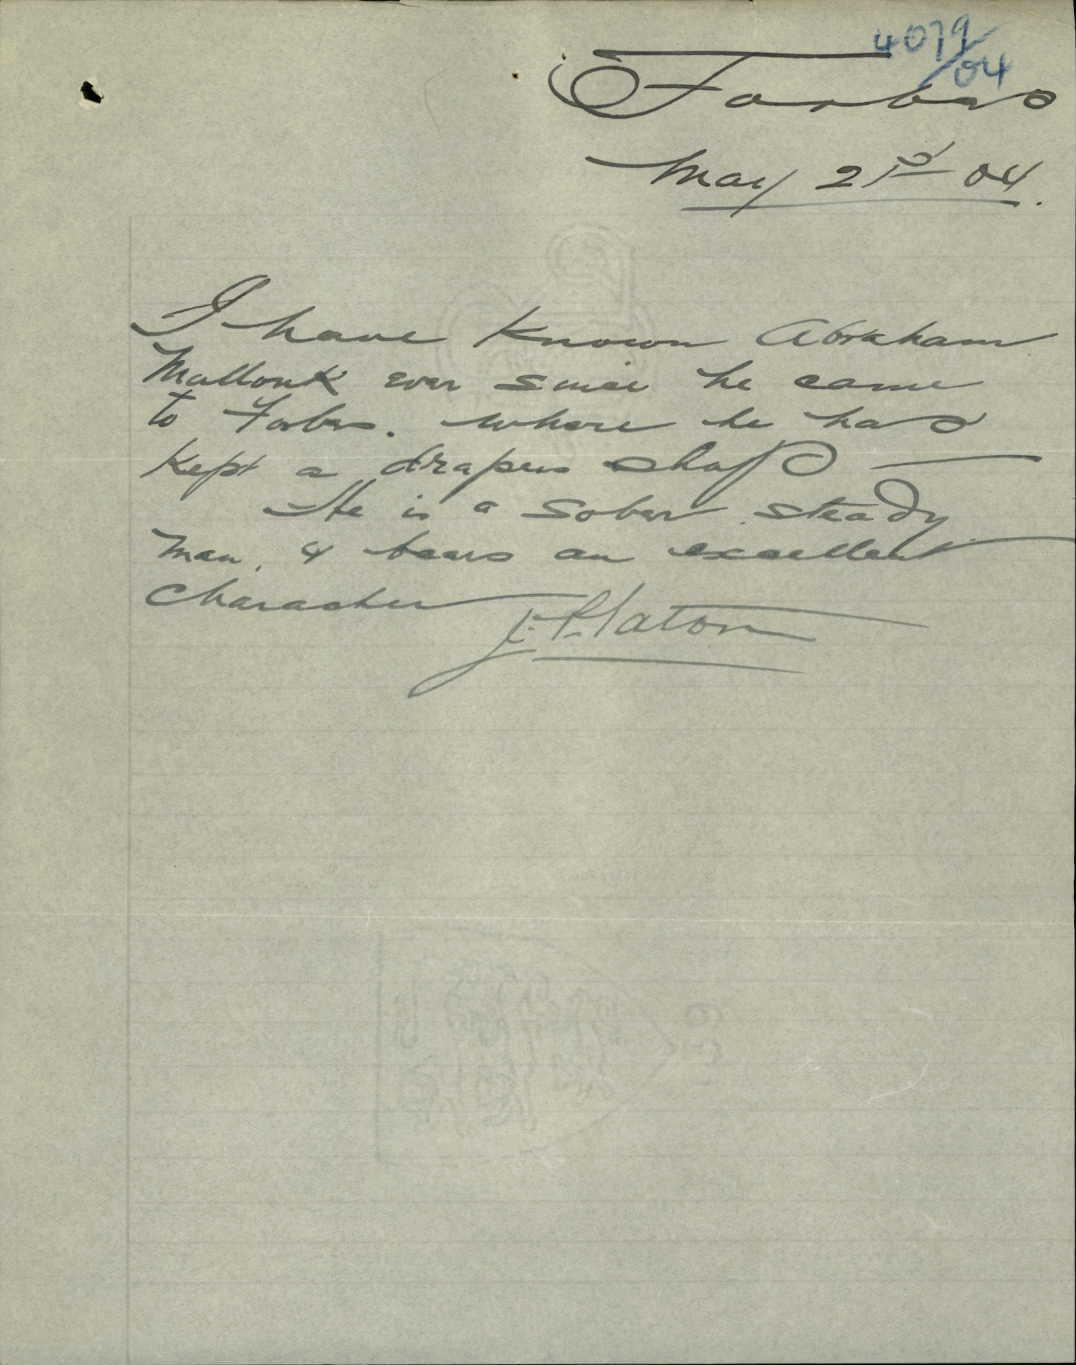 4079/04
Forbes
May 21st 04.
I have known Abraham
Mallouk ever since he came
to Forbes. where he has
kept a drapers shop
He is a sober steady
man, & bears an excellent
character